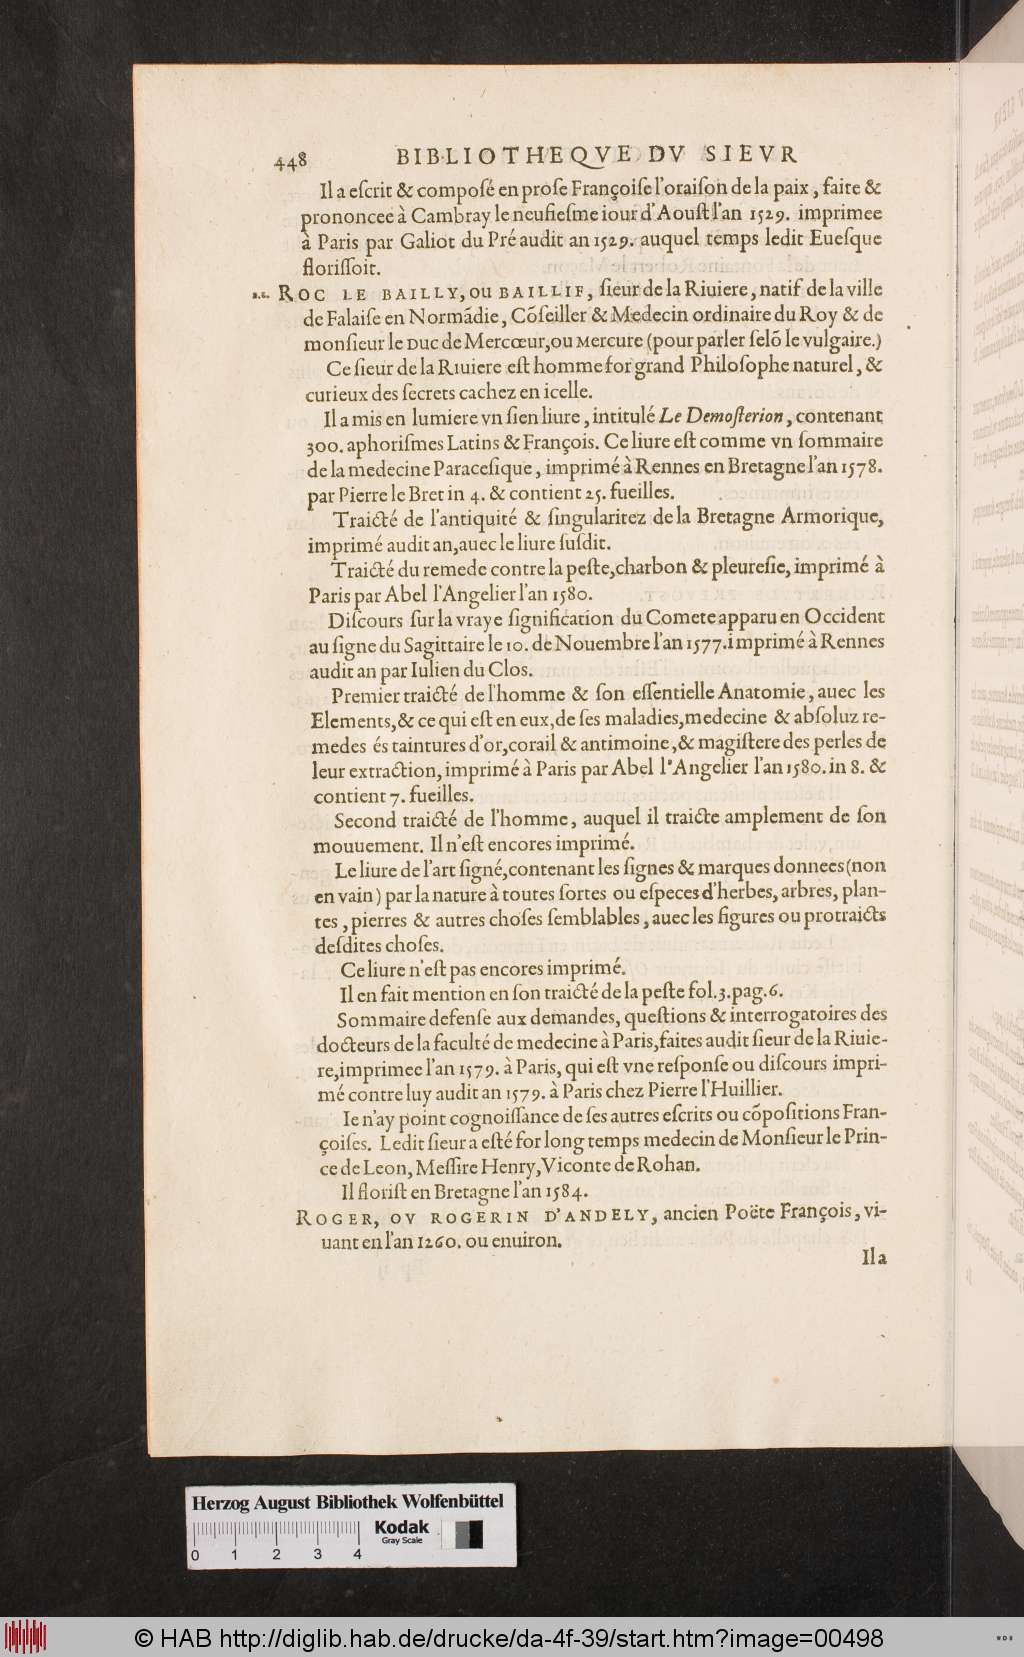 448 BIBLIOTHEQVE DV SIEVR
Il a eſcrit & compoſé en proſe Françoiſe l'oraiſon de la paix, faite &
prononcee à Cambray le neufieſme iour d'Aouſt l'an 1529. imprimee
à Paris par Galiot du Pré audit an 1529. auquel temps ledit Eueſque
floriſſoit.
ROC LE BAILLY, OU BAILLIF, ſieur de la Riuiere, natif de la ville
de Falaiſe en Normãdie, Cõſeiller & Medecin ordinaire du Roy & de
monſieur le Duc de Mercœur, ou Mercure (pour parler ſelõ le vulgaire.)
Ce ſieur de la Riuiere eſt homme for grand Philoſophe naturel, &
curieux des ſecrets cachez en icelle.
Il a mis en lumiere vn ſien liure, intitulé Le Demoſterion, contenant
300. aphoriſmes Latins & François. Ce liure eſt comme vn ſommaire
de la medecine Paraceſique, imprimé à Rennes en Bretagne l'an 1578.
par Pierre le Bret in 4. & contient 25. fueilles.
Traicté de l'antiquité & ſingularitez de la Bretagne Armorique,
imprimé audit an, auec le liure ſuſdit.
Traicté du remede contre la peſte, charbon & pleureſie, imprimé à
Paris par Abel l'Angelier l'an 1580.
Diſcours ſur la vraye ſignification du Comete apparu en Occident
au ſigne du Sagittaire le 10. de Nouembre l'an 1577. imprimé à Rennes
audit an par Iulien du Clos.
Premier traicté de l'homme & ſon eſſentielle Anatomie, auec les
Elements, & ce qui eſt en eux, de ſes maladies, medecine & abſoluz re-
medes és taintures d'or, corail & antimoine, & magiſtere des perles de
leur extraction, imprimé à Paris par Abel l'Angelier l'an 1580. in 8. &
contient 7. fueilles.
Second traicté de l'homme, auquel il traicte amplement de ſon
mouuement. Il n'eſt encores imprimé.
Le liure de l'art ſigné, contenant les ſignes & marques donnees (non
en vain) par la nature à toutes ſortes ou eſpeces d'herbes, arbres, plan-
tes, pierres & autres choſes ſemblables, auec les figures ou protraicts
deſdites choſes.
Ce liure n'eſt pas encores imprimé.
Il en fait mention en ſon traicté de la peſte fol. 3. pag. 6.
Sommaire defenſe aux demandes, queſtions & interrogatoires des
docteurs de la faculté de medecine à Paris, faites audit ſieur de la Riuie-
re, imprimee l'an 1579. à Paris, qui eſt vne reſponſe ou diſcours impri-
mé contre luy audit an 1579. à Paris chez Pierre l'Huillier.
Ie n'ay point cognoiſſance de ſes autres eſcrits ou cõpoſitions Fran-
çoiſes. Ledit ſieur a eſté for long temps medecin de Monſieur le Prin-
ce de Leon, Meſſire Henry, Viconte de Rohan.
Il floriſt en Bretagne l'an 1584.
ROGER, OV ROGERIN D'ANDELY, ancien Poëte François, vi-
uant en l'an 1260. ou enuiron.
Il a
Herzog August Bibliothek Wolfenbüttel
Kodak
Gray Scale
0 1 2 3 4
© HAB http://diglib.hab.de/drucke/da-4f-39/start.htm?image=00498